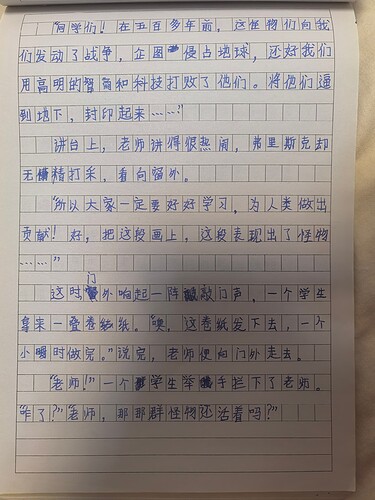 "同学们！在五百多年前，这怪物们向我
们发动了战争，企图侵占地球，还好我们
用高明的智商和科技打败了他们。将他们逼
到地下，封印起来……"
讲台上，老师讲得很热闹，弗里斯克却
无精打采，看向窗外。
"所以大家一定要好好学习，为人类做出
贡献！好，把这段画上，这段表现出了怪物
……"
这时门外响起一阵敲门声，一个学生
拿来一叠卷纸。"噢，这卷纸发下去，一个
小时做完。"说完，老师便向门外走去。
"老师！"一个学生举手拦下了老师。
"咋了？""老师，那那群怪物还活着吗？"